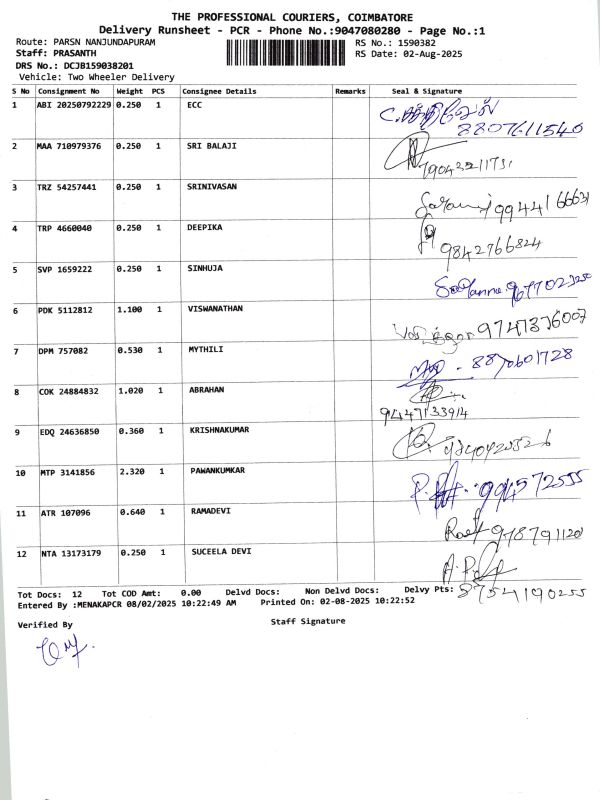 THE PROFESSIONAL COURIERS, COIMBATORE
Delivery Runsheet - PCR - Phone No.:9047080280 - Page No.:1
Route: PARSN NANJUNDAPURAM RS No.: 1590382
Staff: PRASANTH RS Date: 02-Aug-2025
DRS No.: DCJB159038201
Vehicle: Two Wheeler Delivery
S No Consignment No Weight PCS Consignee Details Remarks Seal & Signature
1 ABI 20250792229 0.250 1 ECC
8807611540
2 MAA 710979376 0.250 1 SRI BALAJI
3 TRZ 54257441 0.250 1 SRINIVASAN
4 TRP 4660040 0.250 1 DEEPIKA
9842766824
5 SVP 1659222 0.250 1 SINHUJA
6 PDK 5112812 1.100 1 VISWANATHAN
9747376007
7 DPM 757082 0.530 1 MYTHILI
8870601728
8 COK 24884832 1.020 1 ABRAHAN
9447133914
9 EDQ 24636850 0.360 1 KRISHNAKUMAR
10 MTP 3141856 2.320 1 PAWANKUMKAR
11 ATR 107096 0.640 1 RAMADEVI
12 NTA 13173179 0.250 1 SUCEELA DEVI
Tot Docs: 12 Tot COD Amt: 0.00 Delvd Docs: Non Delvd Docs: Delvy Pts:
8754190255
Entered By :MENAKAPCR 08/02/2025 10:22:49 AM Printed On: 02-08-2025 10:22:52
Verified By Staff Signature